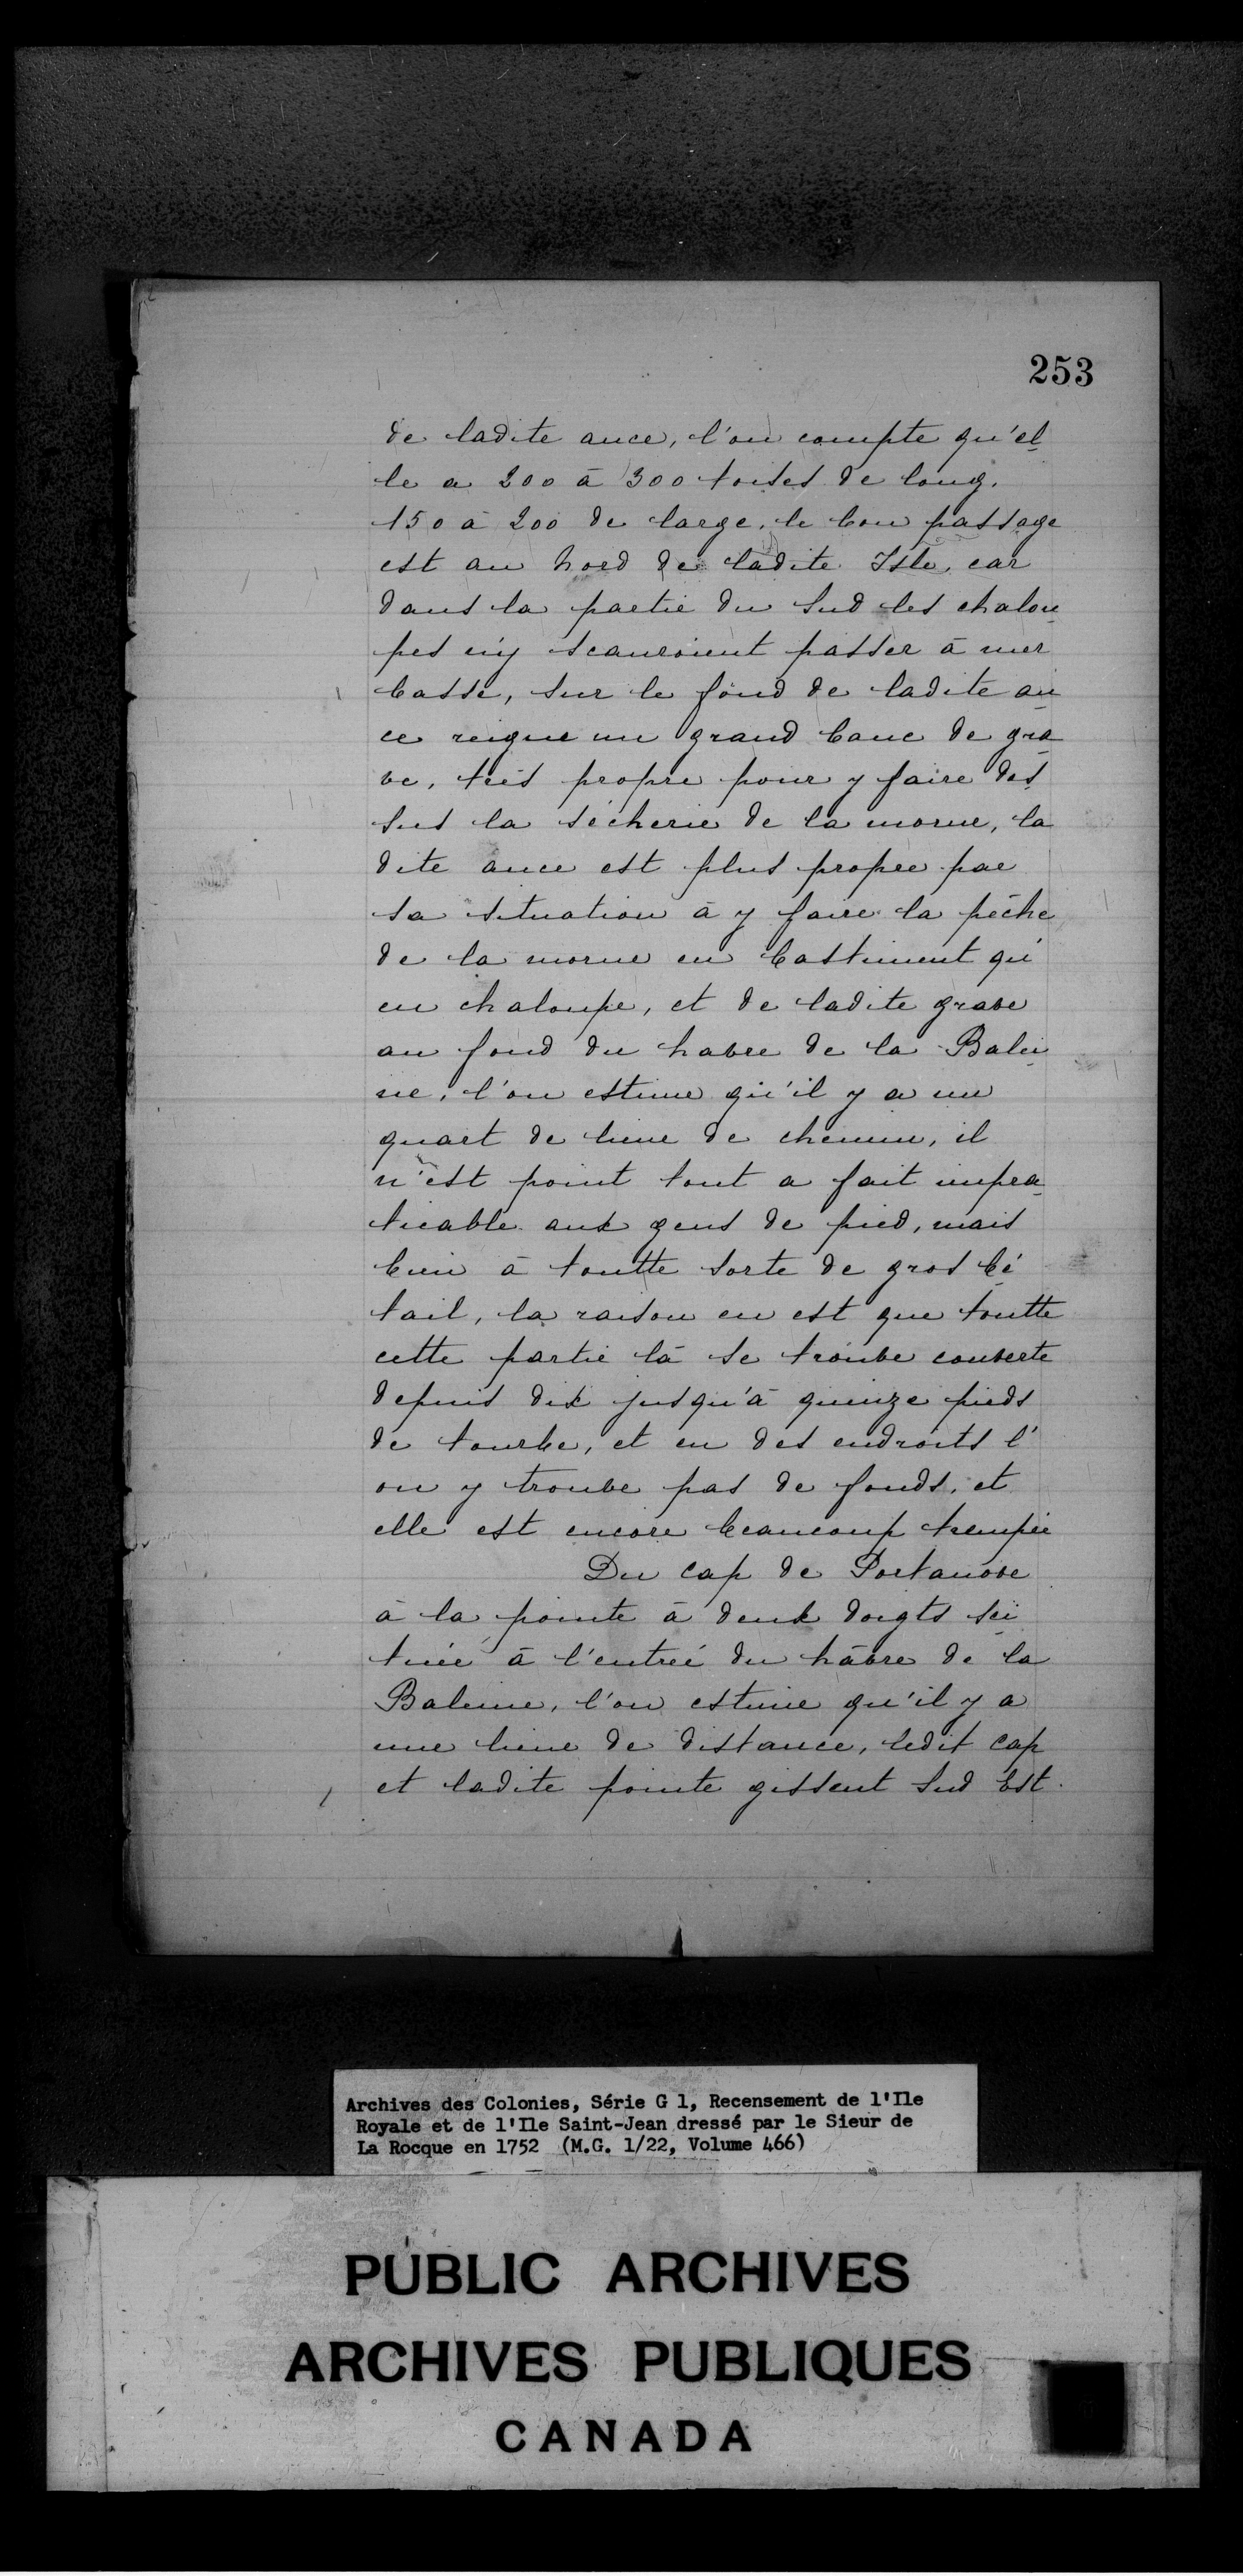 253
de ladite ance, l'on compte qu'el
le a 200 à 300 toises de long,
150 à 200 de large, le bon passage
est au Nord de ladite Isle, car
dans la partie du Sud les chalou
pes n'y scauroient passer à mer
basse, sur le fond de ladite an
ce reigne un grand banc de gra
ve, très propre pour y faire des
sus la sécherie de la morue, la
dite ance est plus propre par
sa situation à y faire la pêche
de la morue en bastiment qu'
en chaloupe, et de ladite grave
au fond du havre de la Balei
ne, l'on estime qu'il y a un
quart de lieue de chemin, il
n'est point tout a fait impra
ticable aux gens de pied, mais
bien à toutte sorte de gros bé
tail, la raison en est que toutte
cette partie là se trouve couverte
depuis dix jusqu'à quinze pieds
de tourbe, et en des endroits l'
on y trouve pas de fonds, et
elle est encore beaucoup trempée
Du cap de Portanove
à la pointe à deux doigts sci
tuée à l'entrée du hâvre de la
Baleine, l'on estime qu'il y a
une lieue de distance, ledit cap
et ladite pointe gissent Sud Est
Archives des Colonies, Série G 1, Recensement de l'Ile
Royale et de l'Ile Saint-Jean dressé par le Sieur de
La Rocque en 1752 (M.G. 1/22, Volume 466)
PUBLIC ARCHIVES
ARCHIVES PUBLIQUES
CANADA